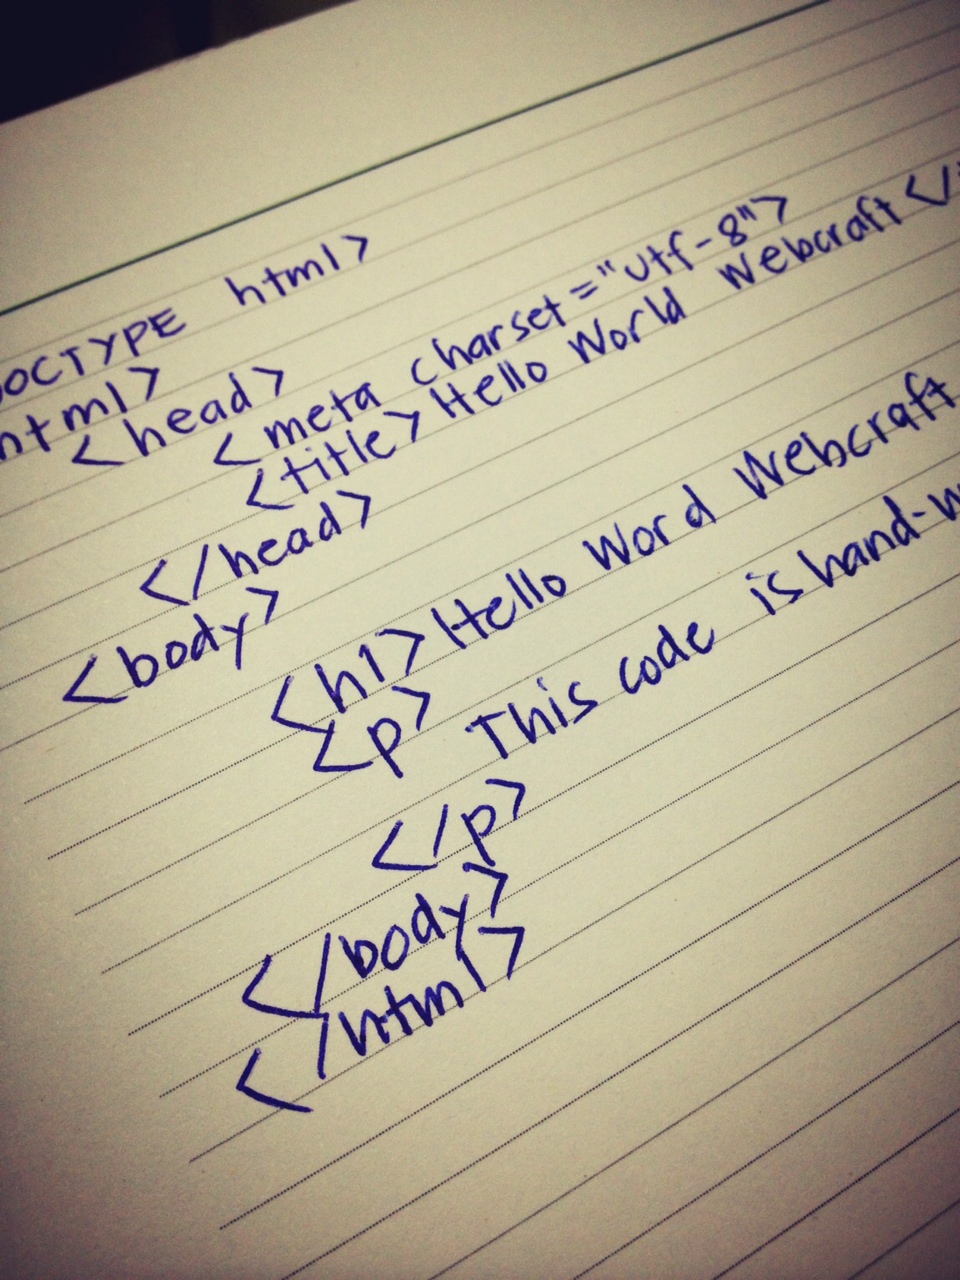 DOCTYPE html>
html>
<head>
<meta charset="utf-8">
<title>Hello World Webcraft</
</head>
<body>
<h1>Hello Word Webcraft
<p> This code is hand-w
</p>
</body>
</html>